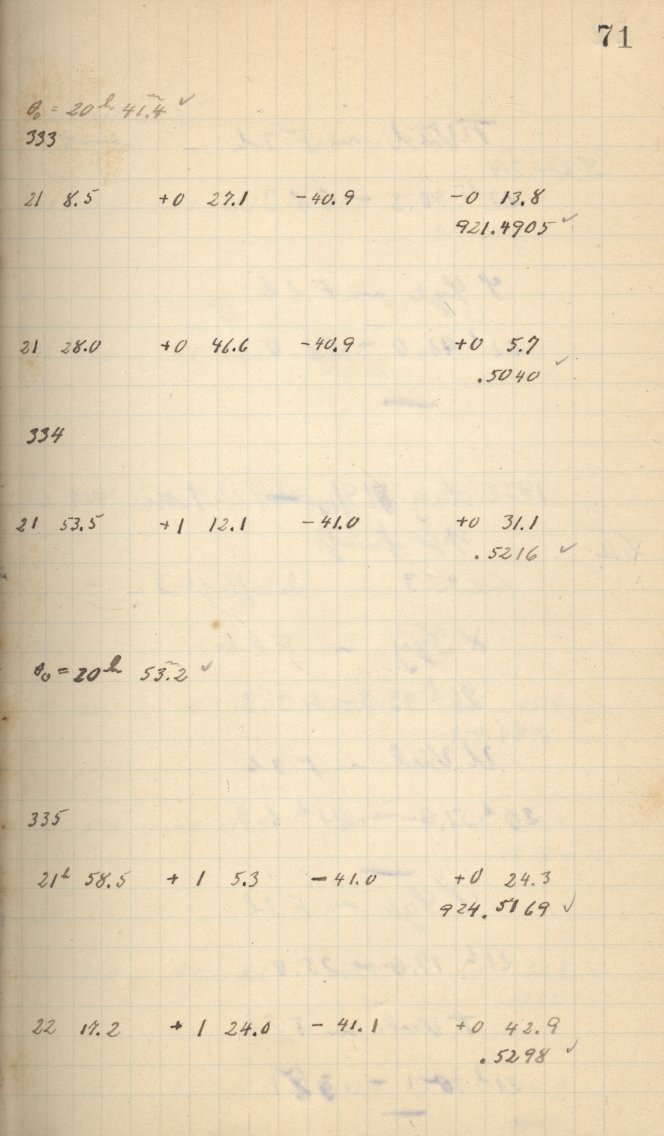 71
θ₀ = 20ʰ 41ᵐ.4 ✓
333
21 8.5 +0 27.1 -40.9 -0 13.8
921.4905 ✓
21 28.0 +0 46.6 -40.9 +0 5.7
.5040 ✓
334
21 53.5 +1 12.1 -41.0 +0 31.1
.5216 ✓
θ₀ = 20ʰ 53ᵐ.2 ✓
335
21ʰ 58.5 +1 5.3 -41.0 +0 24.3
924.5169 ✓
22 17.2 +1 24.0 -41.1 +0 42.9
.5298 ✓